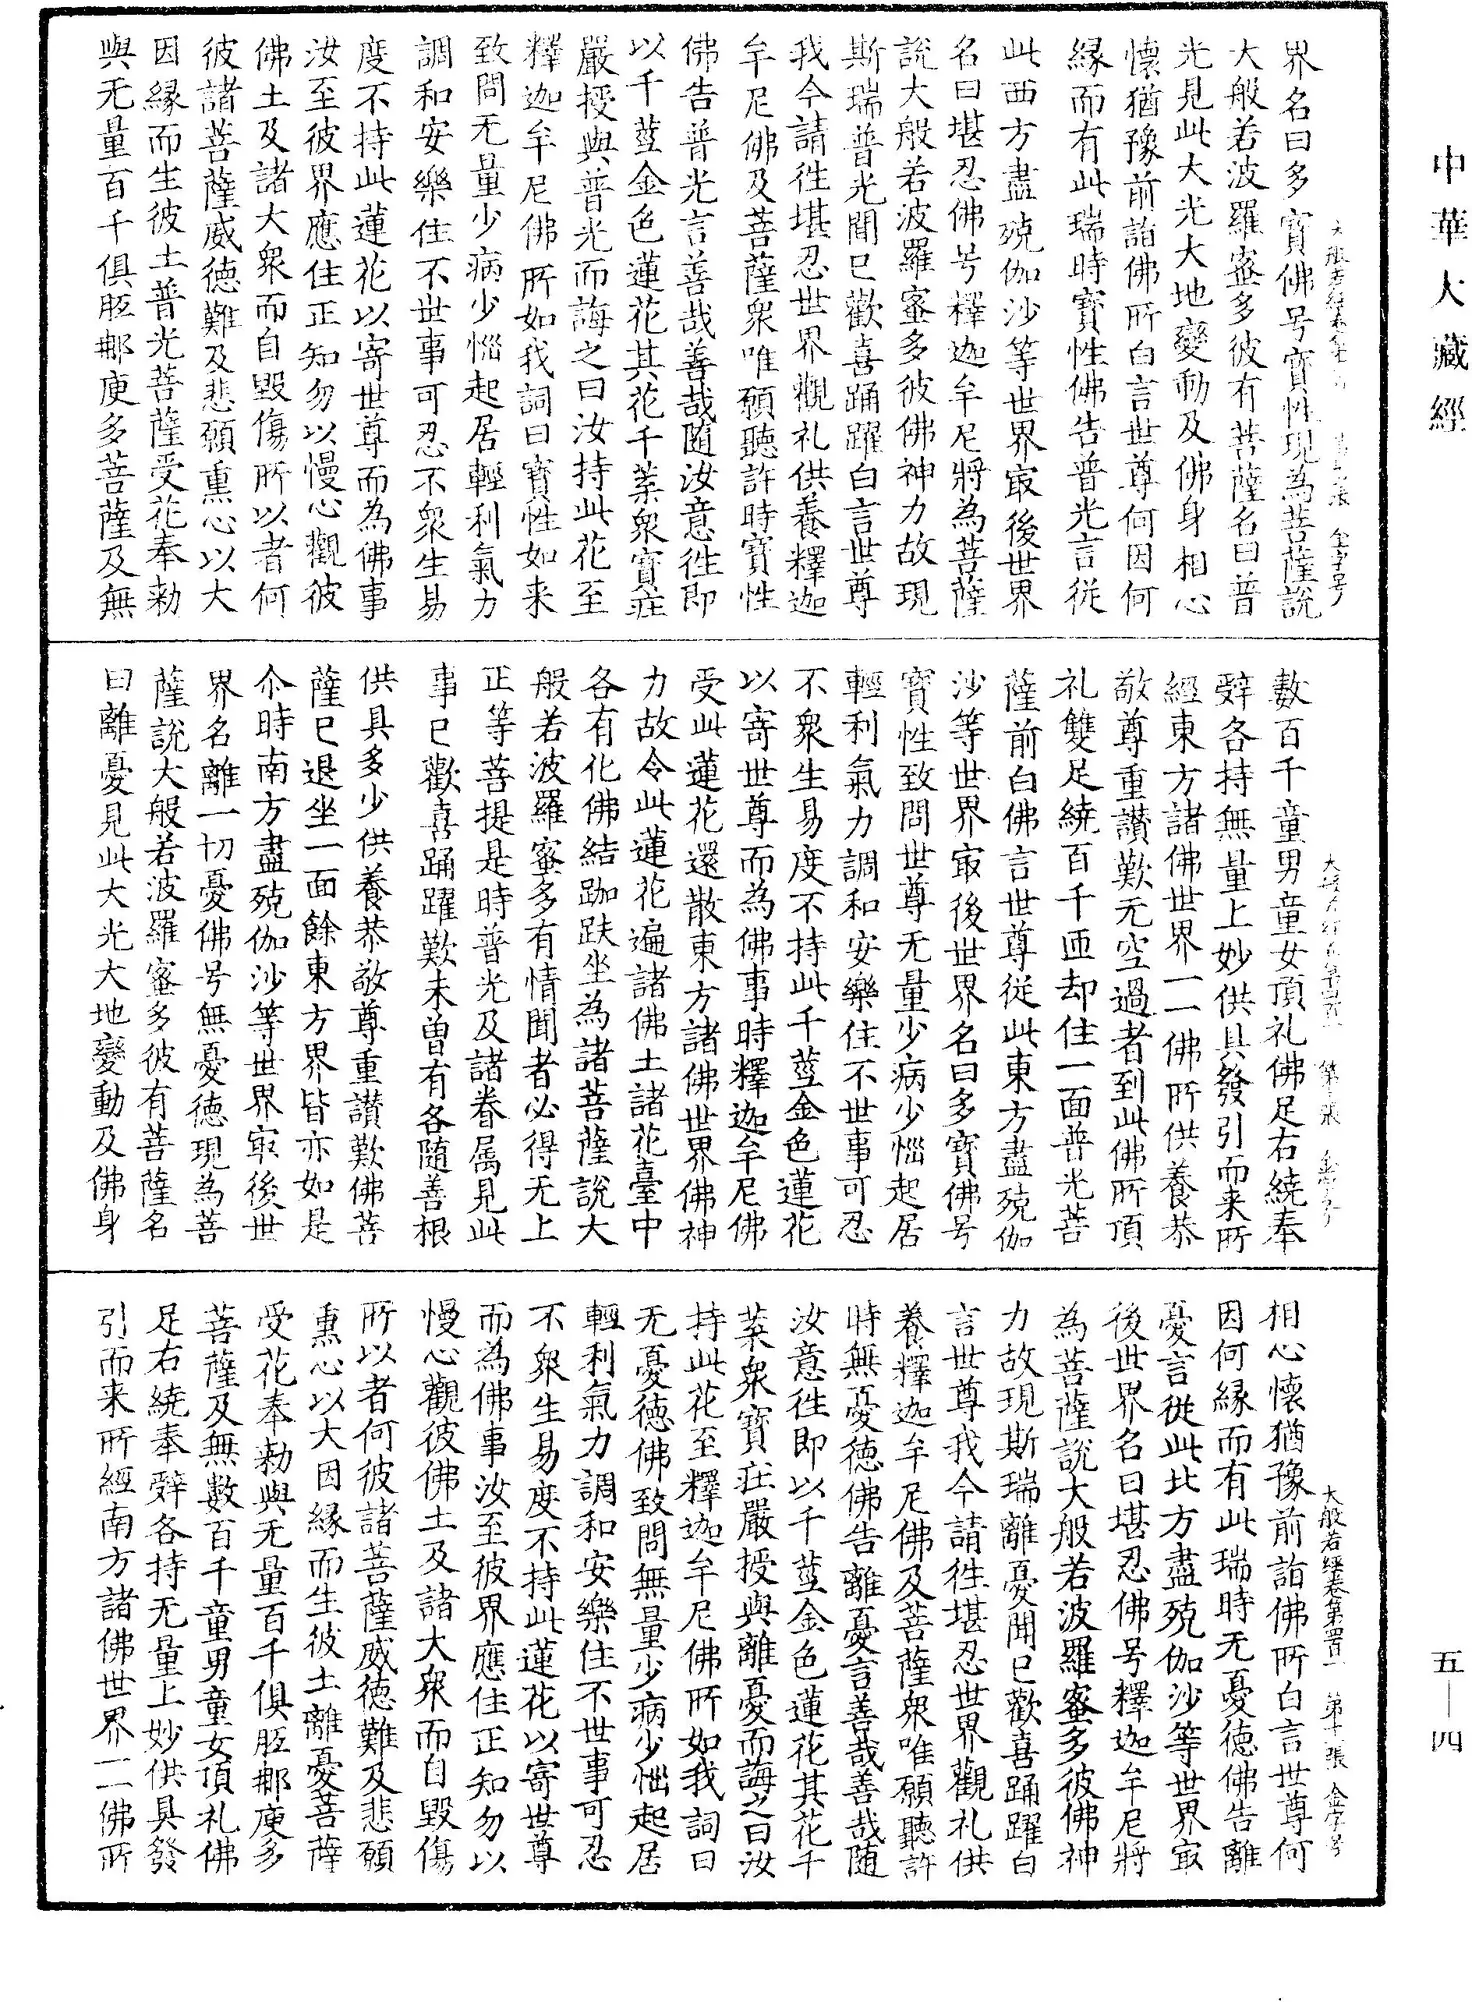 中華大藏經
界名曰多寳佛号寳性現為菩薩說
大般若波羅蜜多彼有菩薩名曰普
光見此大光大地變動及佛身相心
懷猶豫前詣佛所白言世尊何因何
緣而有此瑞時寳性佛告普光言従
此西方盡殑伽沙等世界㝡後世界
名曰堪忍佛号釋迦牟尼將為菩薩
說大般若波羅蜜多彼佛神力故現
斯瑞普光聞已歡喜踊躍白言世尊
我今請往堪忍世界觀礼供養釋迦
牟尼佛及菩薩衆唯願聽許時寳性
佛告普光言善哉善哉隨汝意往即
以千莖金色蓮花其花千葉衆寳莊
嚴授與普光而誨之曰汝持此花至
釋迦牟尼佛所如我詞曰寳性如来
致問无量少病少惱起居輕利氣力
調和安樂住不世事可忍不衆生易
度不持此蓮花以寄世尊而為佛事
汝至彼界應住正知勿以慢心觀彼
佛土及諸大衆而自毀傷所以者何
彼諸菩薩威德難及悲願熏心以大
因緣而生彼土普光菩薩受花奉勑
與无量百千俱胝那庾多菩薩及無
數百千童男童女頂礼佛足右繞奉
辭各持無量上妙供具發引而来所
經東方諸佛世界一一佛所供養恭
敬尊重讃歎无空過者到此佛所頂
礼雙足繞百千匝却住一面普光菩
薩前白佛言世尊従此東方盡殑伽
沙等世界㝡後世界名曰多寳佛号
寳性致問世尊无量少病少惱起居
輕利氣力調和安樂住不世事可忍
不衆生易度不持此千莖金色蓮花
以寄世尊而為佛事時釋迦牟尼佛
受此蓮花還散東方諸佛世界佛神
力故令此蓮花遍諸佛土諸花臺中
各有化佛結跏趺坐為諸菩薩說大
般若波羅蜜多有情聞者必得无上
正等菩提是時普光及諸眷属見此
事已歡喜踊躍歎未曾有各隨善根
供具多少供養恭敬尊重讃歎佛菩
薩已退坐一面餘東方界皆亦如是
尒時南方盡殑伽沙等世界㝡後世
界名離一切憂佛号無憂德現為菩
薩說大般若波羅蜜多彼有菩薩名
曰離憂見此大光大地變動及佛身
大般若經卷第四百一　第十張　金字号
相心懷猶豫前詣佛所白言世尊何
因何緣而有此瑞時无憂德佛告離
憂言従此北方盡殑伽沙等世界㝡
後世界名曰堪忍佛号釋迦牟尼將
為菩薩說大般若波羅蜜多彼佛神
力故現斯瑞離憂聞已歡喜踊躍白
言世尊我今請往堪忍世界觀礼供
養釋迦牟尼佛及菩薩衆唯願聽許
時無憂德佛告離憂言善哉善哉随
汝意往即以千莖金色蓮花其花千
葉衆寳莊嚴授與離憂而誨之曰汝
持此花至釋迦牟尼佛所如我詞曰
无憂德佛致問無量少病少惱起居
輕利氣力調和安樂住不世事可忍
不衆生易度不持此蓮花以寄世尊
而為佛事汝至彼界應住正知勿以
慢心觀彼佛土及諸大衆而自毀傷
所以者何彼諸菩薩威德難及悲願
熏心以大因緣而生彼土離憂菩薩
受花奉勑與无量百千俱胝那庾多
菩薩及無數百千童男童女頂礼佛
足右繞奉辭各持无量上妙供具發
引而来所經南方諸佛世界一一佛所
五—四